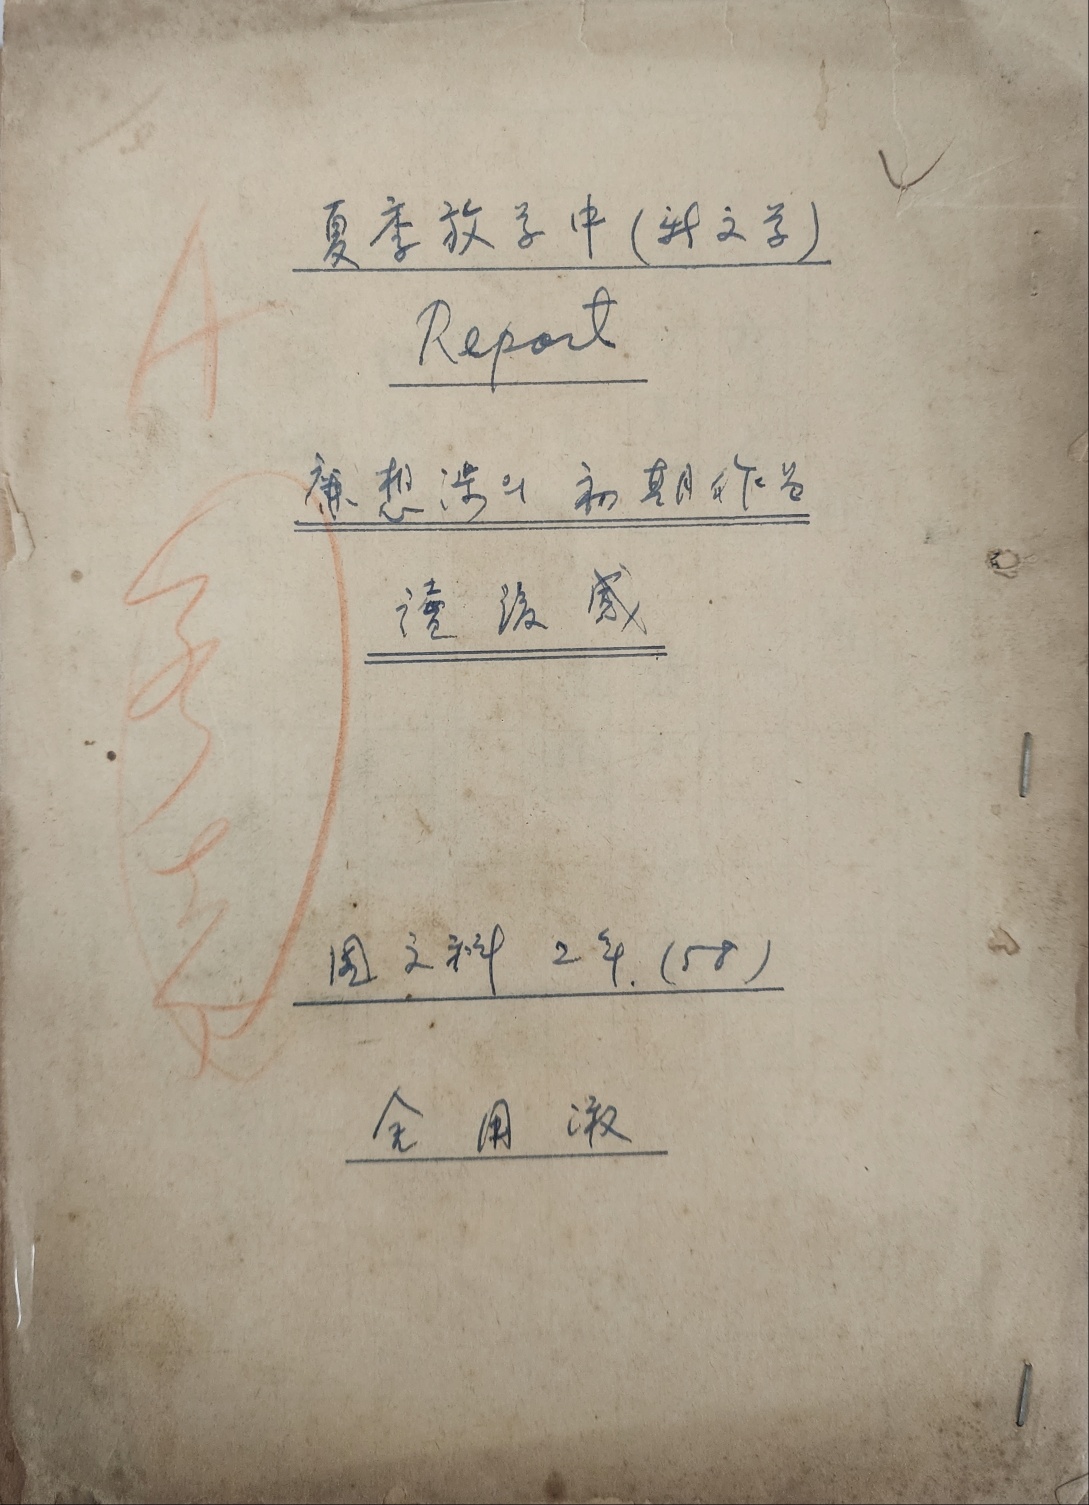 夏季放学中(新文学)
Report
廉想涉의 初期作品
讀後感
国文科 2年.(58)
金用
A